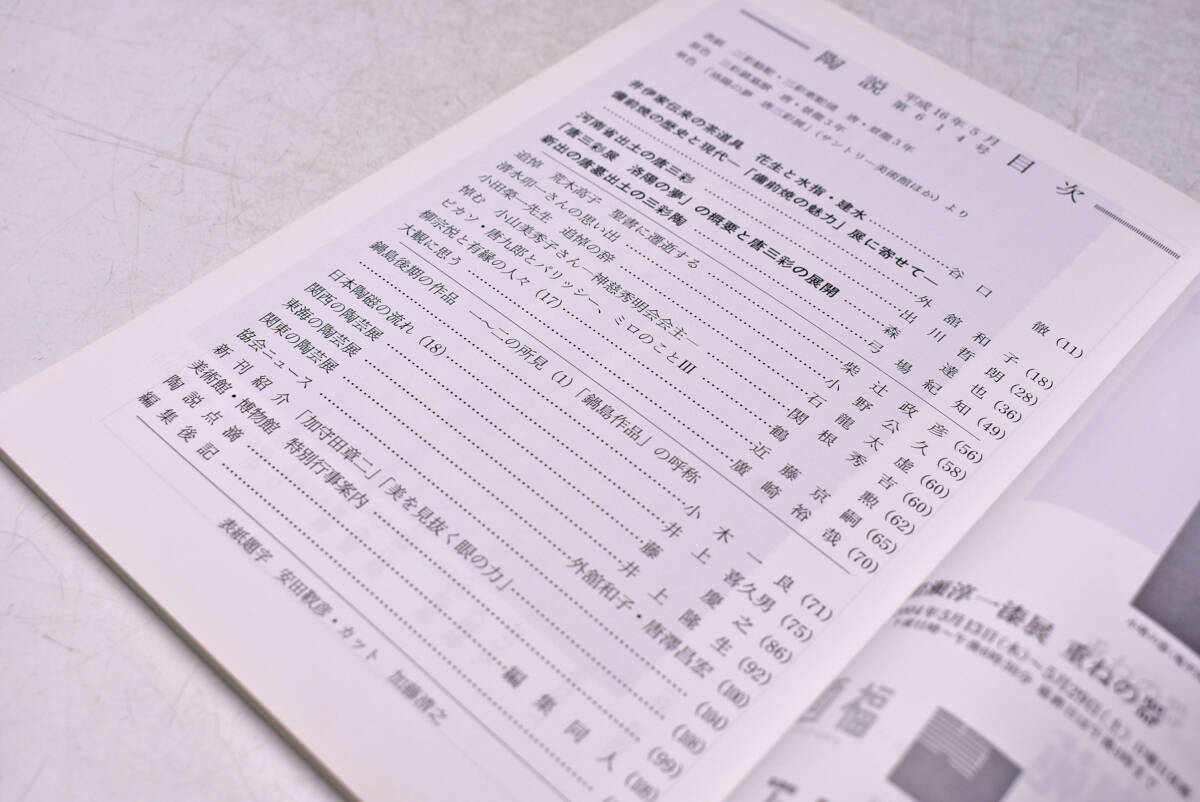 陶説 平成16年5月 第614号 目次
表紙 三彩駱駝・三彩牽駝俑 唐・景龍3年
原色 三彩鎮墓獣 唐・景龍3年
単色 「洛陽の夢 唐三彩展」(サントリー美術館ほか)より
井伊家伝来の茶道具 花生と水指・建水 谷口徹 (11)
備前焼の歴史と現代―「備前焼の魅力」展に寄せて― 外舘和子 (18)
河南省出土の唐三彩 森川哲朗 (28)
「唐三彩展 洛陽の夢」の概要と唐三彩の展開 出川哲朗
新出の唐墓出土の三彩陶 弓場紀知 (49)
追悼 荒木高子 聖書に遷逝する 柴辻政彦 (56)
清水卯一さんの思い出 小野公久 (58)
小田榮一先生 追悼の辞 石龍太虚 (60)
悼む 小山美秀子さん―神慈秀明会会主― 関根秀吉 (60)
ピカソ・唐九郎とパリッシー、ミロのことⅢ 鶴 勲 (62)
柳宗悦と有縁の人々 (17) 近藤京嗣 (65)
大観に思う 廣崎裕哉 (70)
鍋島後期の作品 一~二の所見 (1) 「鍋島作品」の呼称 小木一良 (71)
日本陶磁の流れ (18) 井上喜久男 (75)
関西の陶芸展 藤慶之 (86)
東海の陶芸展 井上隆生 (92)
関東の陶芸展 外舘和子・唐澤昌宏 (100)
協会ニュース (104)
新刊紹介 「加守田章二」「美を見抜く眼の力」 (108)
美術館・博物館 特別行事案内 (99)
陶説点滴
編集後記 編集同人 (118)
表紙題字 安田靫彦・カット 加藤清之
淳一漆展 重ねの器